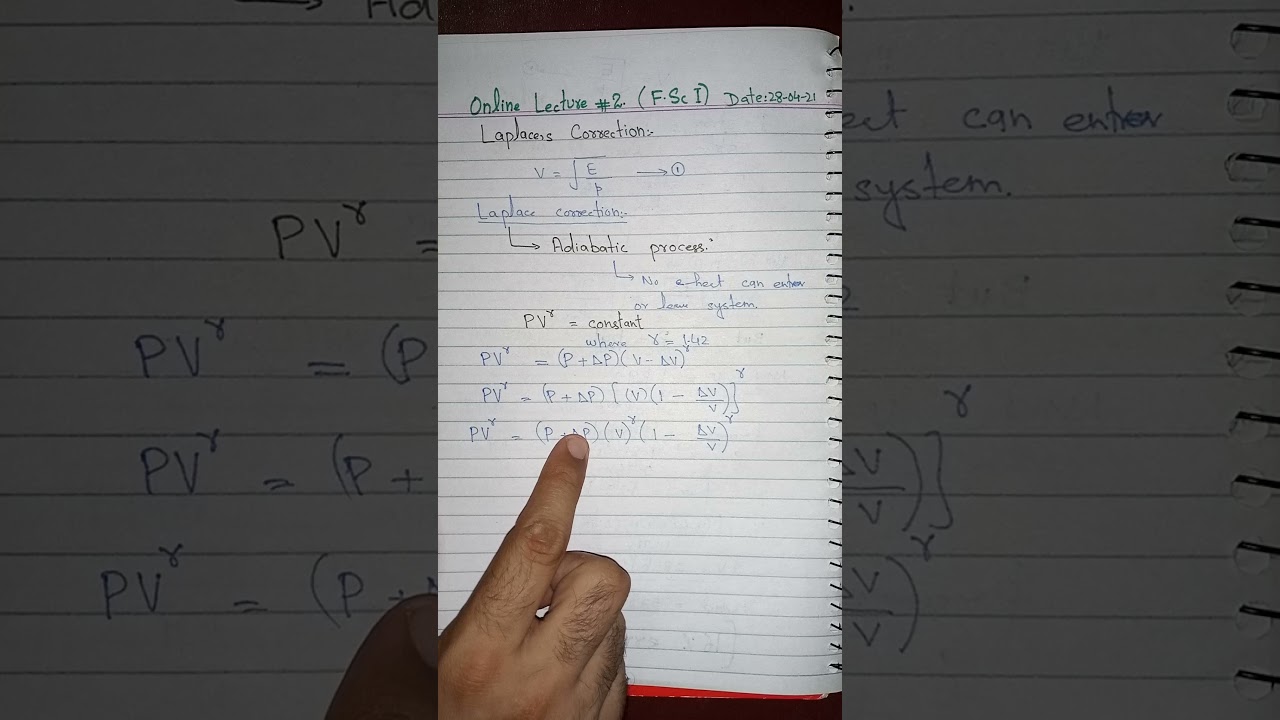 Online Lecture #2. (F.Sc I) Date:28-04-21
Laplacers Correction:-
V = √E/ρ → ①
Laplace correction:-
↳ Adiabatic process:
↳ No heat can enter
or leave system.
PV^γ = constant
where γ = 1.42
PV^γ = (P + ΔP)(V - ΔV)^γ
PV^γ = (P + ΔP) [(V)(1 - ΔV/V)]^γ
PV^γ = (P + ΔP)(V)^γ(1 - ΔV/V)^γ